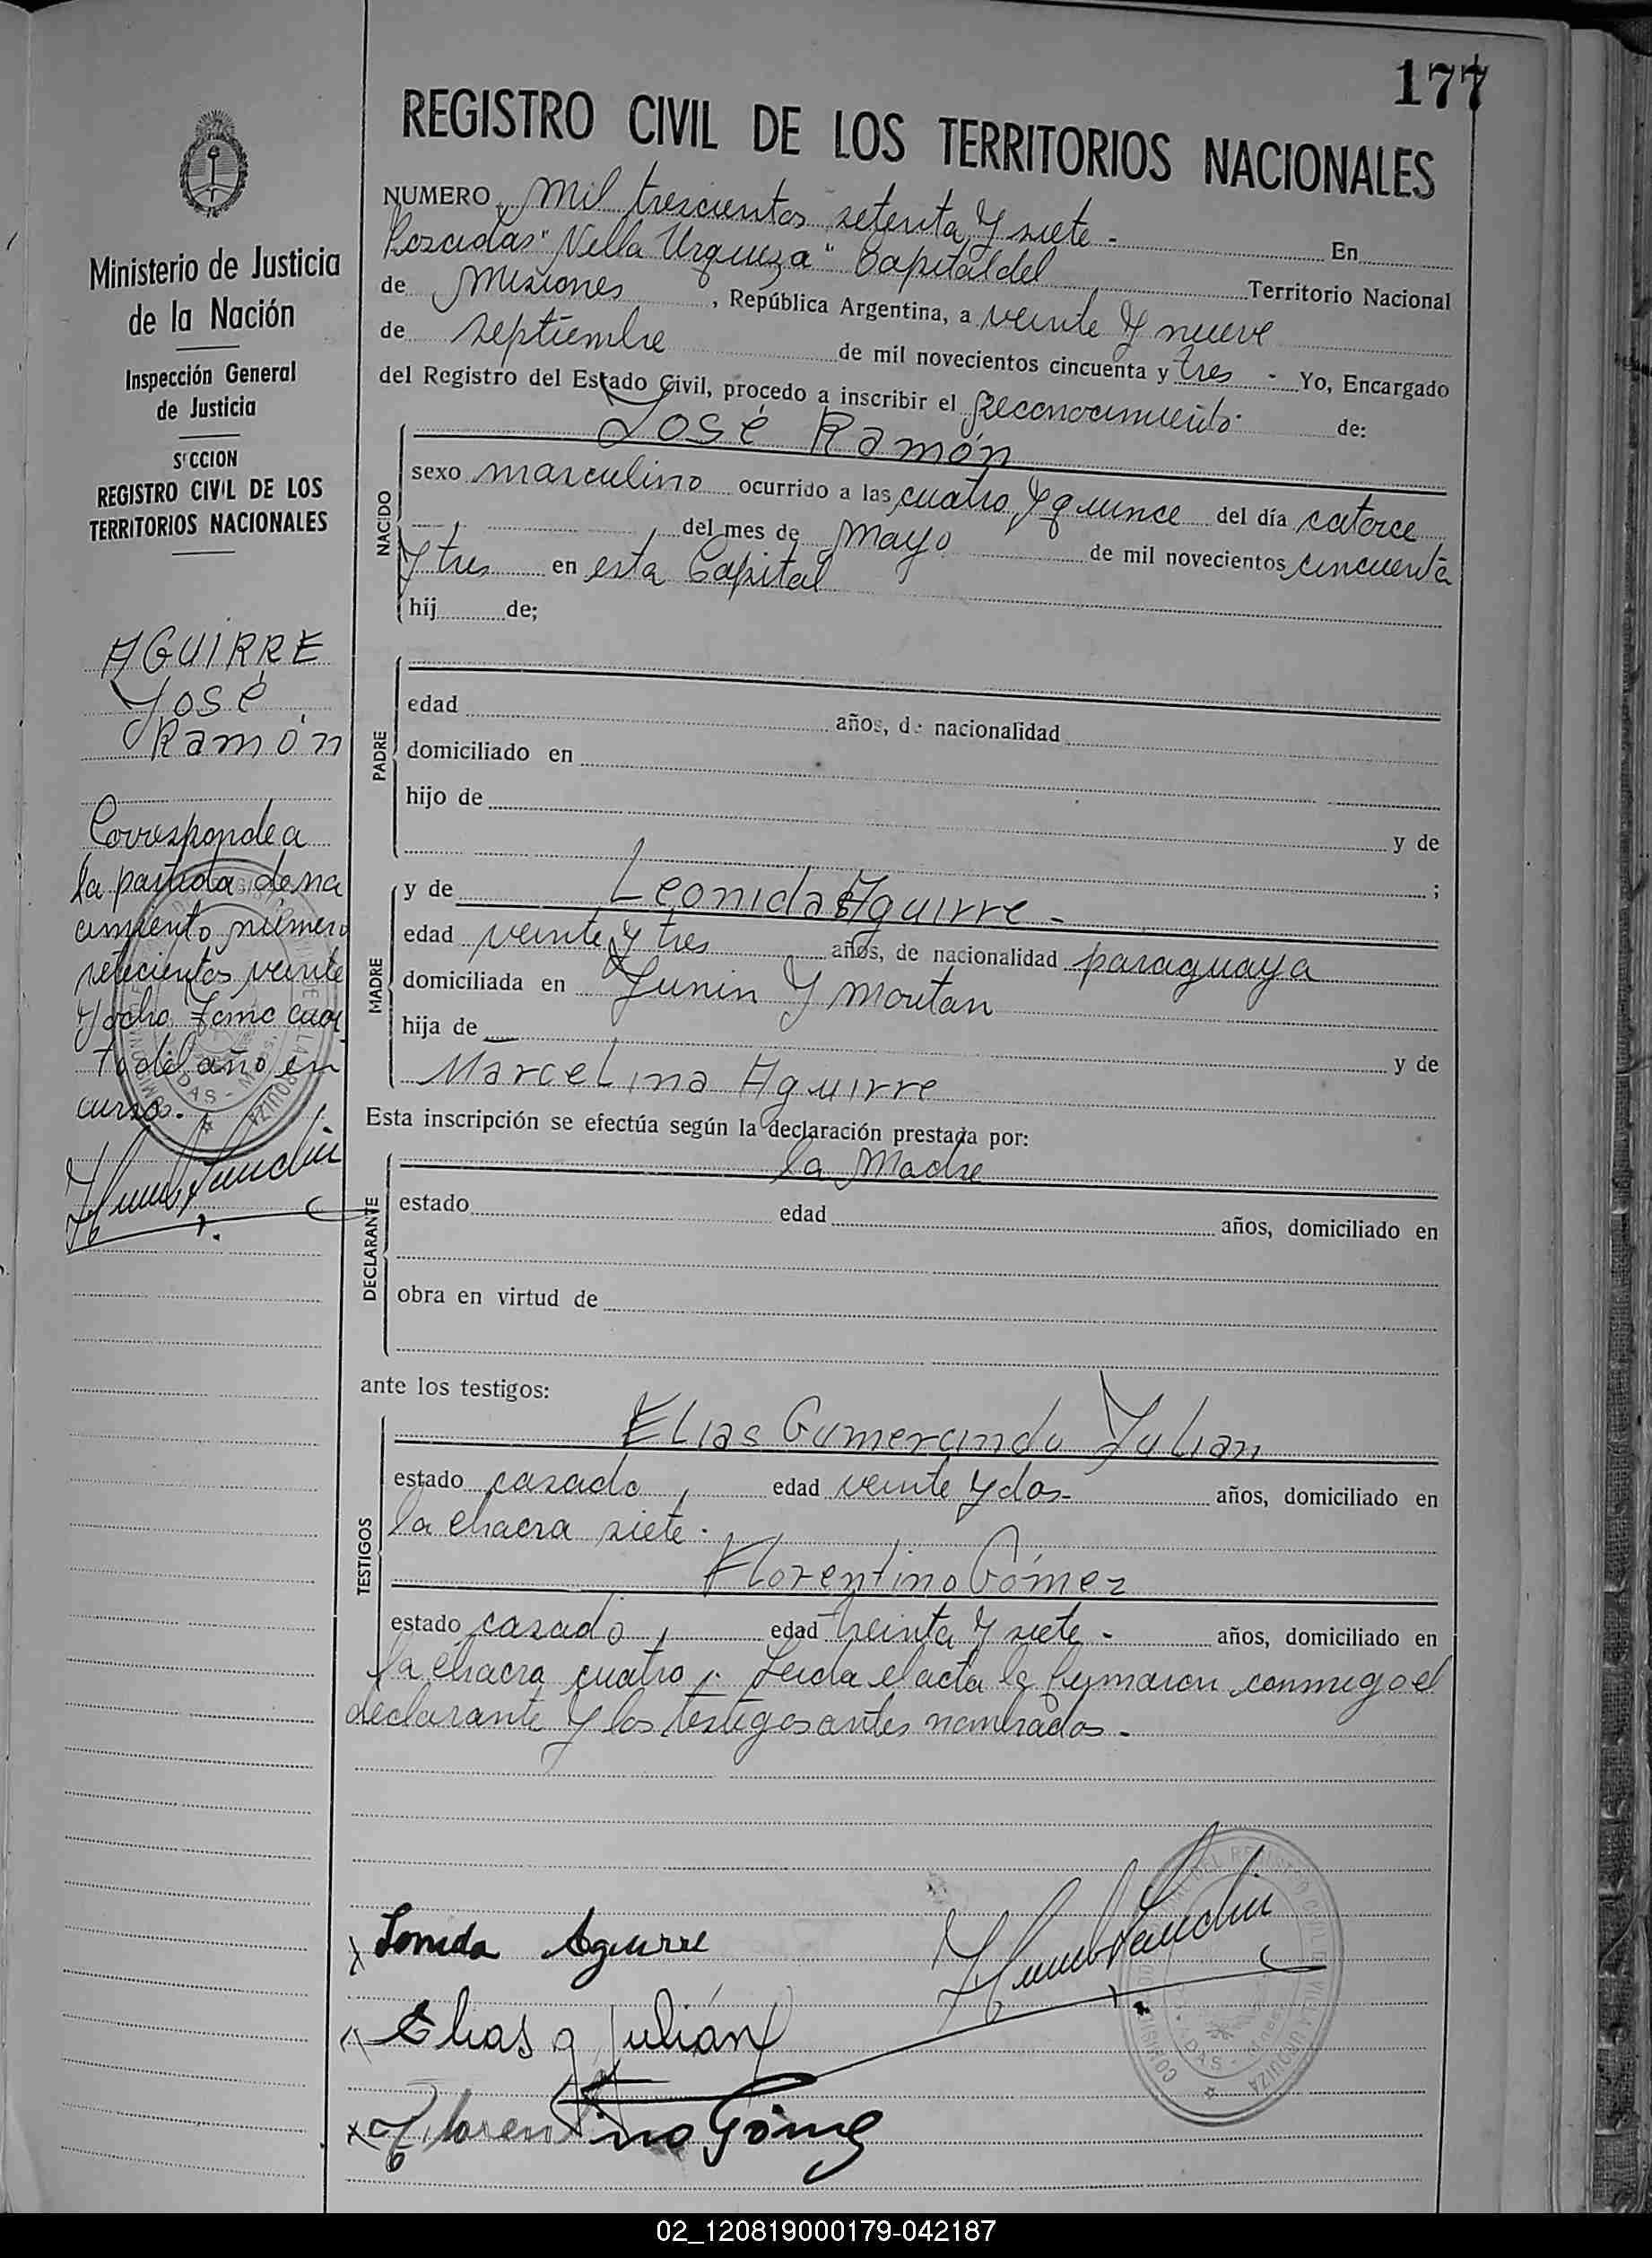 177
REGISTRO CIVIL DE LOS TERRITORIOS NACIONALES
Ministerio de Justicia
de la Nación
Inspección General
de Justicia
SECCION
REGISTRO CIVIL DE LOS
TERRITORIOS NACIONALES
AGUIRRE
José
Ramón
Corresponde a
la partida de na
cimiento número
setecientos veinte
y ocho Tomo cuar
to del año en
curso.
NUMERO mil trescientos setenta y siete - En
Posadas "Villa Urquiza" Capital del Territorio Nacional
de Misiones, República Argentina, a veinte y nueve
de septiembre de mil novecientos cincuenta y tres - Yo, Encargado
del Registro del Estado Civil, procedo a inscribir el Reconocimiento de:
NACIDO
José Ramón
sexo masculino ocurrido a las cuatro y quince del día catorce
del mes de Mayo de mil novecientos cincuenta
y tres en esta Capital
hij de;
PADRE
edad años, de nacionalidad
domiciliado en
hijo de
y de
;
MADRE
y de Leonida Aguirre -
edad veinte y tres años, de nacionalidad paraguaya
domiciliada en Junin y Moutan
hija de y de
Marcelina Aguirre
Esta inscripción se efectúa según la declaración prestada por:
DECLARANTE
la Madre
estado edad años, domiciliado en
obra en virtud de
ante los testigos:
TESTIGOS
Elias Gumercindo Julian
estado casado, edad veinte y dos - años, domiciliado en
la chacra siete.
Florentino Gómez
estado casado, edad treinta y siete - años, domiciliado en
la chacra cuatro. Leida el acta la firmaron conmigo el
declarante y los testigos antes nombrados.-
x Lonida Aguirre
Elias g Julián
x Florentino Gómez
02_120819000179-042187